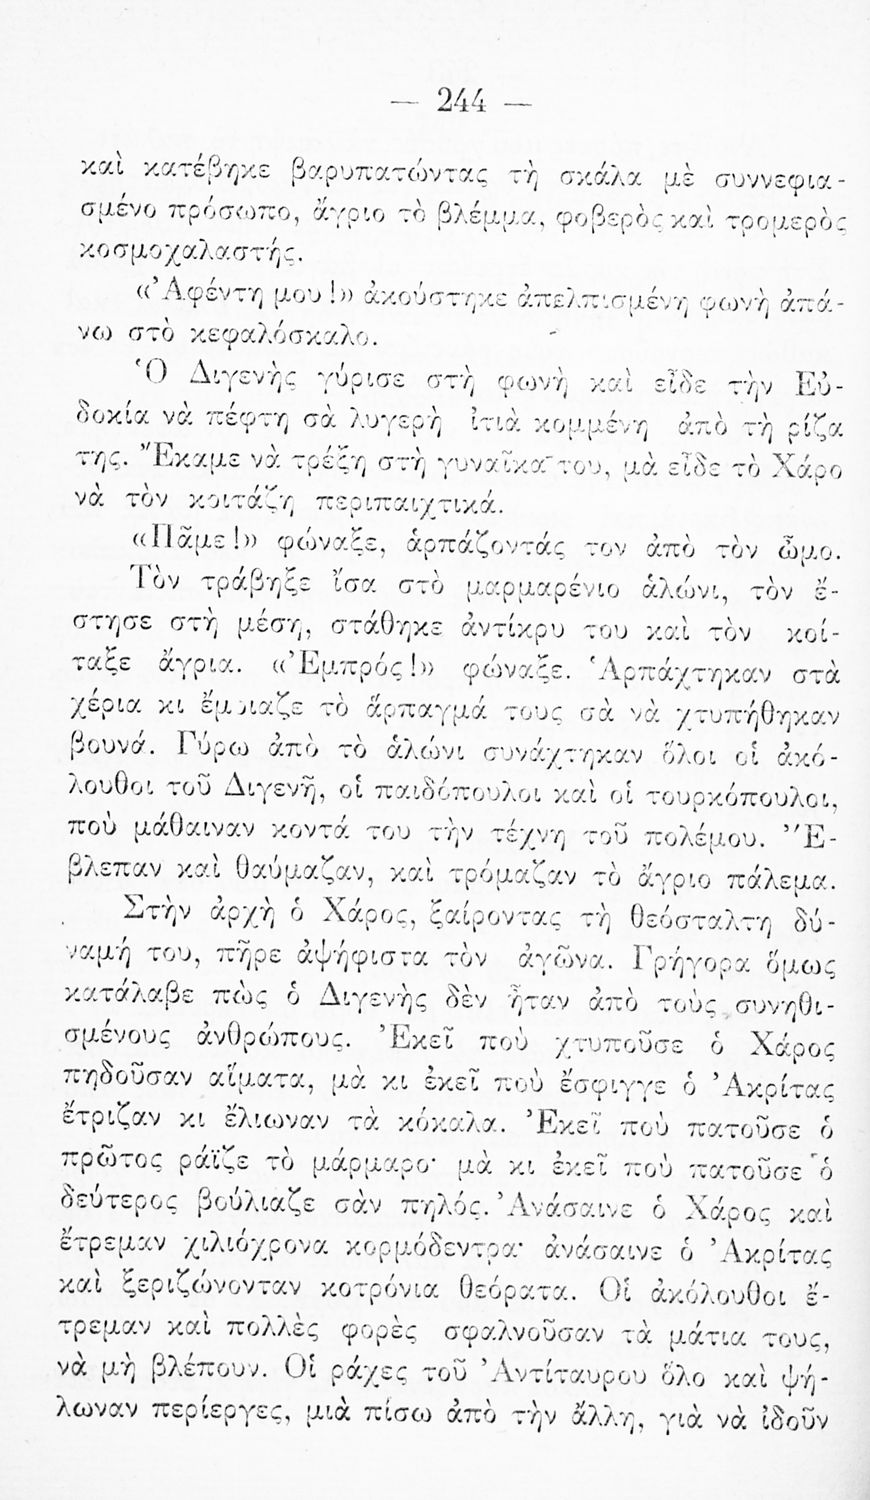 — 244 —
καὶ κατέβηκε βαρυπατώντας τὴ σκάλα μὲ συννεφια-
σμένο πρόσωπο, ἄγριο τὸ βλέμμα, φοβερὸς καὶ τρομερὸς
κοσμοχαλαστής.
«Ἀφέντη μου!» ἀκούστηκε ἀπελπισμένη φωνὴ ἀπά-
νω στὸ κεφαλόσκαλο.
Ὁ Διγενὴς γύρισε στὴ φωνὴ καὶ εἶδε τὴν Εὐ-
δοκία νὰ πέφτη σὰ λυγερὴ ἰτιὰ κομμένη ἀπὸ τὴ ρίζα
της. Ἔκαμε νὰ τρέξη στὴ γυναῖκα του, μὰ εἶδε τὸ Χάρο
νὰ τὸν κοιτάζη περιπαιχτικά.
«Πᾶμε!» φώναξε, ἁρπάζοντάς τον ἀπὸ τὸν ὦμο.
Τὸν τράβηξε ἴσα στὸ μαρμαρένιο ἁλώνι, τὸν ἔ-
στησε στὴ μέση, στάθηκε ἀντίκρυ του καὶ τὸν κοί-
ταξε ἄγρια. «Ἐμπρός!» φώναξε. Ἁρπάχτηκαν στὰ
χέρια κι ἔμοιαζε τὸ ἅρπαγμά τους σὰ νὰ χτυπήθηκαν
βουνά. Γύρω ἀπὸ τὸ ἁλώνι συνάχτηκαν ὅλοι οἱ ἀκό-
λουθοι τοῦ Διγενῆ, οἱ παιδόπουλοι καὶ οἱ τουρκόπουλοι,
ποὺ μάθαιναν κοντά του τὴν τέχνη τοῦ πολέμου. Ἔ-
βλεπαν καὶ θαύμαζαν, καὶ τρόμαζαν τὸ ἄγριο πάλεμα.
Στὴν ἀρχὴ ὁ Χάρος, ξαίροντας τὴ θεόσταλτη δύ-
ναμή του, πῆρε ἀψήφιστα τὸν ἀγῶνα. Γρήγορα ὅμως
κατάλαβε πὼς ὁ Διγενὴς δὲν ἦταν ἀπὸ τοὺς συνηθι-
σμένους ἀνθρώπους. Ἐκεῖ ποὺ χτυποῦσε ὁ Χάρος
πηδοῦσαν αἵματα, μὰ κι ἐκεῖ ποὺ ἔσφιγγε ὁ Ἀκρίτας
ἔτριζαν κι ἔλιωναν τὰ κόκαλα. Ἐκεῖ ποὺ πατοῦσε ὁ
πρῶτος ράϊζε τὸ μάρμαρο· μὰ κι ἐκεῖ ποὺ πατοῦσε ὁ
δεύτερος βούλιαζε σὰν πηλός. Ἀνάσαινε ὁ Χάρος καὶ
ἔτρεμαν χιλιόχρονα κορμόδεντρα· ἀνάσαινε ὁ Ἀκρίτας
καὶ ξεριζώνονταν κοτρόνια θεόρατα. Οἱ ἀκόλουθοι ἔ-
τρεμαν καὶ πολλὲς φορὲς σφαλνοῦσαν τὰ μάτια τους,
νὰ μὴ βλέπουν. Οἱ ράχες τοῦ Ἀντίταυρου ὅλο καὶ ψή-
λωναν περίεργες, μιὰ πίσω ἀπὸ τὴν ἄλλη, γιὰ νὰ ἰδοῦν